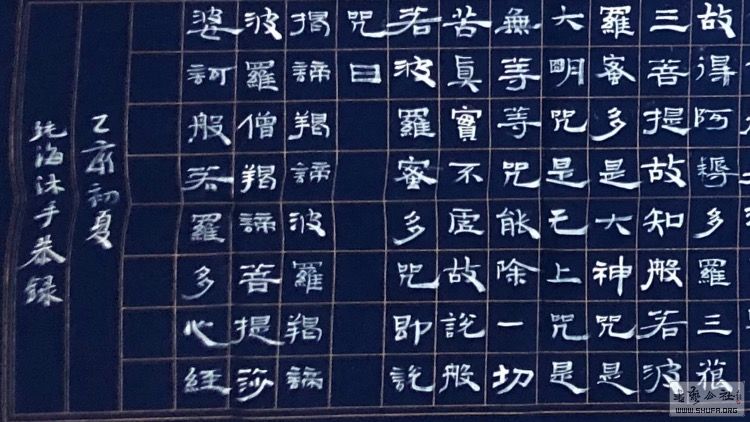 故得阿耨多羅三藐
三菩提故知般若波
羅蜜多是大神咒是
大明咒是无上咒是
無等等咒能除一切
苦真實不虛故說般
若波羅蜜多咒即說
咒曰
揭諦羯諦波羅羯諦
波羅僧羯諦菩提莎
婆訶般若羅多心經
己亥初夏
海沐手恭録
WWW.SHUFA.ORG